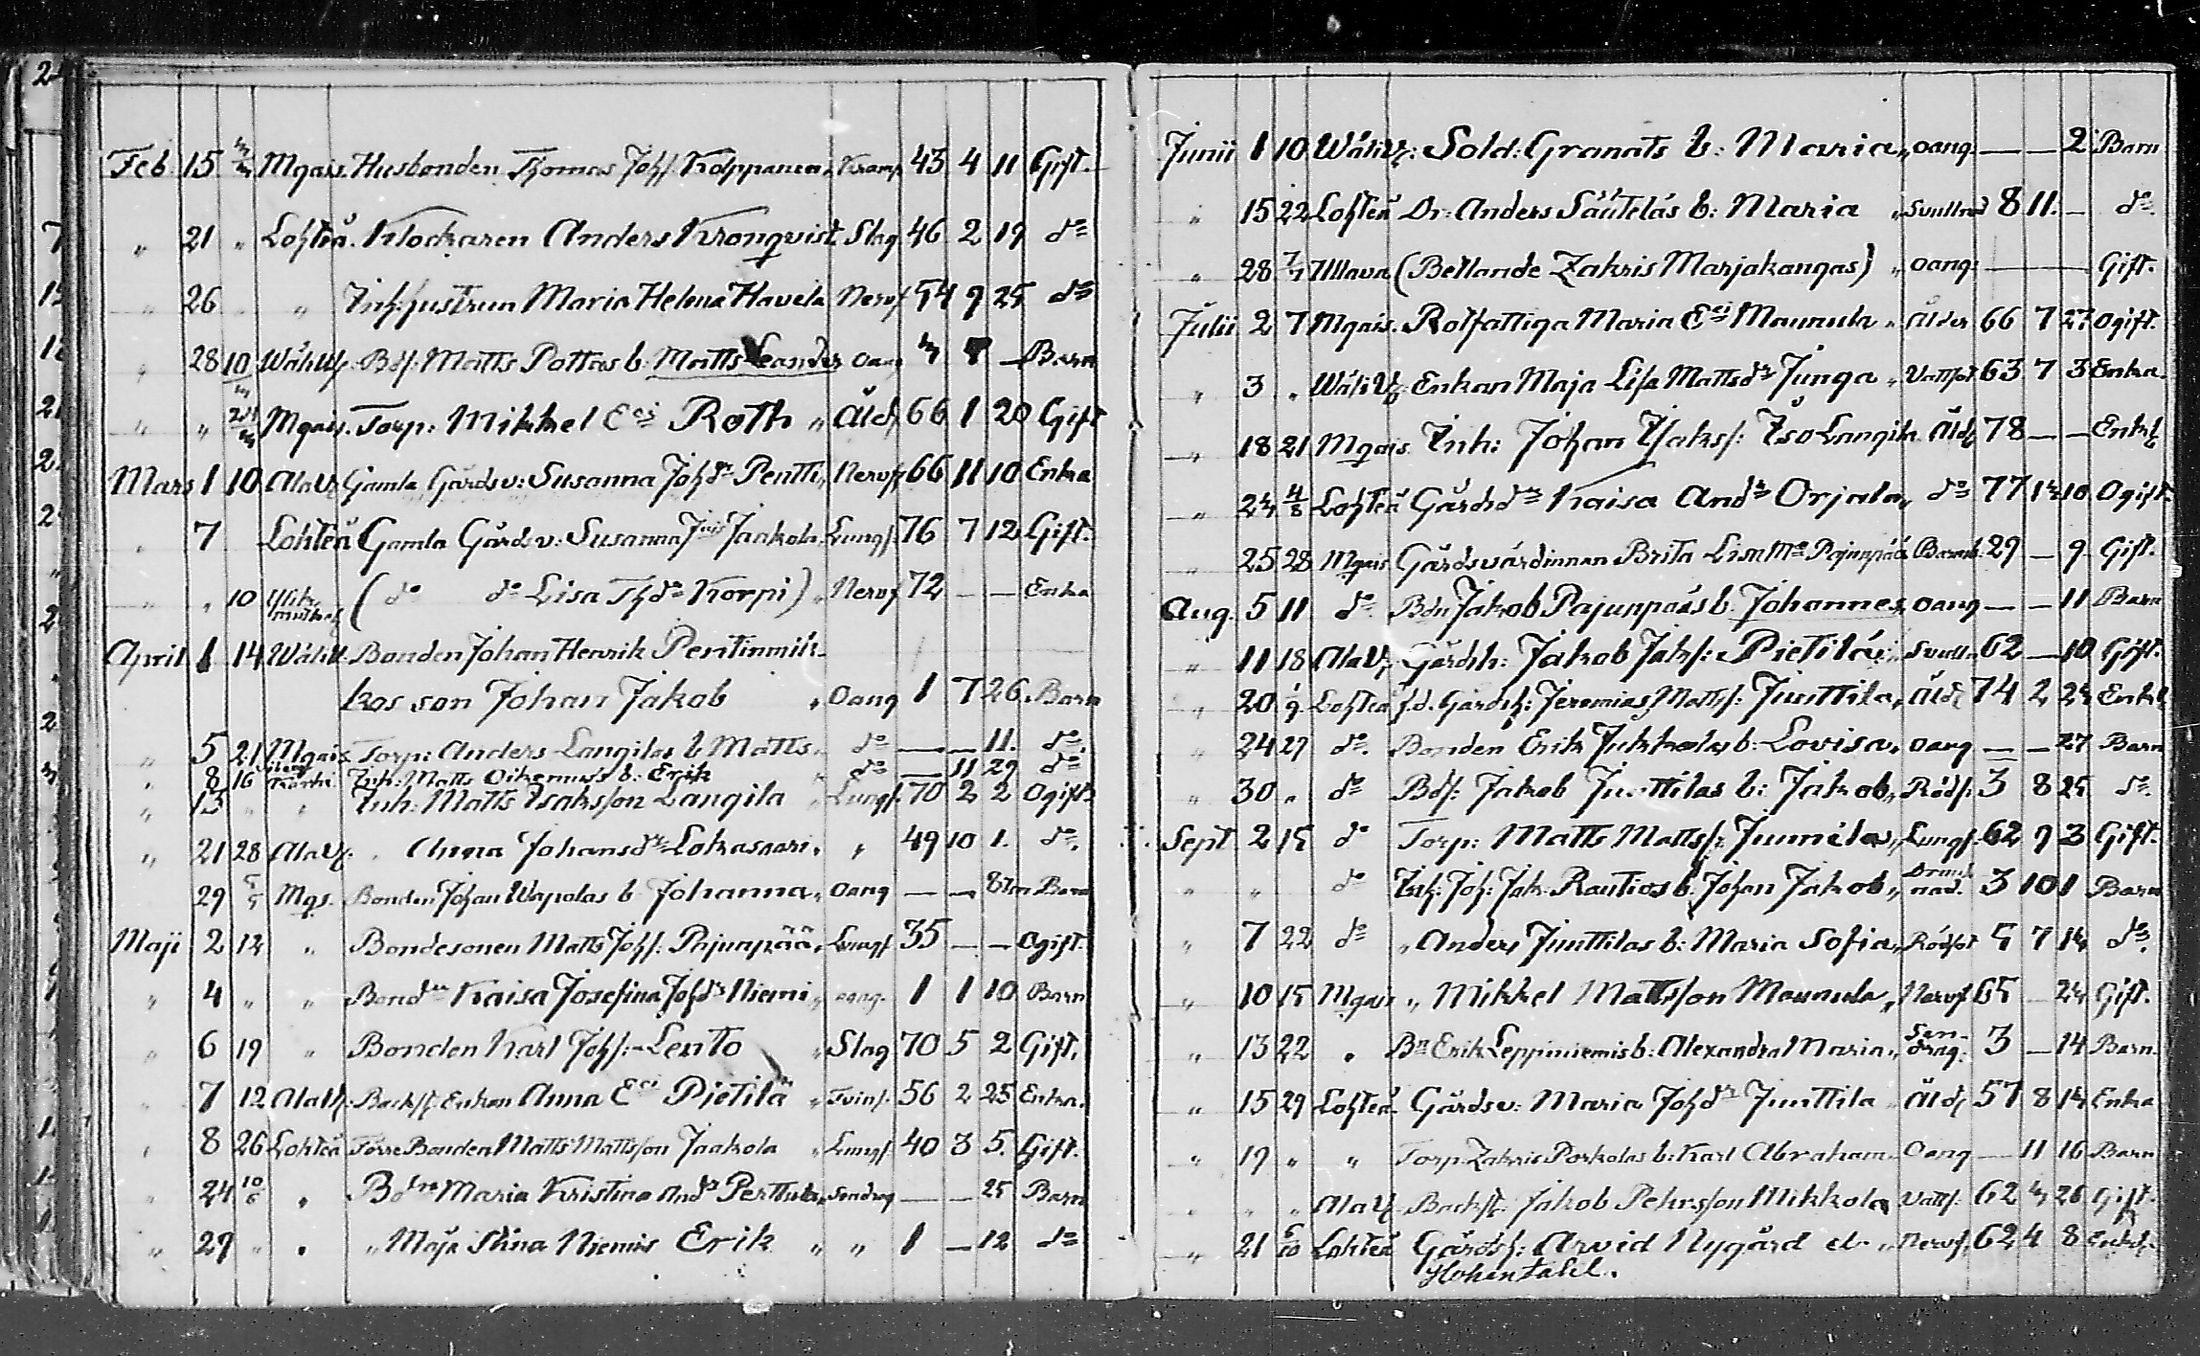 Feb. 15 Mgais. Husbonden Thomas Johs. Kolppanen, Kramp 43 4 11 Gift.
" 21 " Lohteå. Klockaren Anders Kronqvist Slag 46 2 19 do
" 26 " " Inh: hustrun Maria Helena Havela Nervf 54 9 25 do
" 28 10 Wäliv. Bds. Matts Pottas b. Matts Leander oang Barn
" " Mgais. Torp: Mikkel Eri Roth " Åld. 66 1 20 Gift
Mars 1 10 AlaV. Gamla Gårdsv: Susanna Johdr Pentti, Nervf 66 11 10 Enka
" 7 Lohteå Gamla Gårdv: Susanna Jaakola, Lungs. 76 7 12 Gift.
" " 10 (do do Lisa Thdr Korpi) " Nervf 72 — — Enka
April 1 14 Wäliv. Bonden Johan Henrik Pentinmik-
kos son Johan Jakob " Oang 1 7 26 Barn
" 5 21 Mgais Torp: Anders Langilas b Matts. do — — 11. do.
" 8 16 Inh: Matts b: Erik " do — 11 29 do
" 13 " " Inh: Matts Isaksson Langila " Lungs. 70 2 2 Ogift
" 21 28 AlaV. " Anna Johansdr Lokasaari. " 49 10 1. do.
" 29 5/5 Mgs. Bonden Johan Wapolas b. Johanna " oang — — 8 Barn
Maji 2 12 " Bondesonen Matts Johs. Pajunpää, Lungs 35 — — Ogift.
" 4 " " Bonddr Kaisa Josefina Johdr Niemi " oang. 1 1 10 Barn
" 6 19 " Bonden Karl Johs: Lento " Slag 70 5 2 Gift.
" 7 12 AlaV. Backst. Enkan Anna Eri Pietilä " Tvins. 56 2 25 Enka.
" 8 26 Lohteå Torre Bonden Matts Mattsson Jaakola " Lungs. 40 3 5. Gift.
" 24 10/6 " Maria Kristina Andr Perttula, Sendrag — — 25 Barn
" 29 " " " Maja Stina Niemis Erik " " 1 — 12 do
Junii 1 10 WäliV: Sold: Granats b: Maria, oang. — — 2 Barn
" 15 22 Lohteå Dr: Anders Säütelás b: Maria " Svullnad 8 11. — do.
" 28 7/7 Ullava (Betlande Zakris Marjakangas) " oang: — — — Gift.
Julii 2 7 Mgais. Rotfattiga Maria Eri Maunula " Ålder. 66 7 27 Ogift.
" 3 " WäliV. Enkan Maja Lisa Mattsdr Junga " Vattsot 63 7 3 Enka.
" 18 21 Mgais Inh: Johan Isaks: Iso Langila Åld. 78 — — Enkl.
" 24 4/8 Lohteå Gårdsdr Kaisa Andr Orjala, do 77 12 10 Ogift.
" 25 28 Mgais Gårdsvärdinnan Brita Lisa Pajunpää Barnsb. 29 — 9. Gift.
Aug. 5 11 do Bdn Jakob Pajunpääs b. Johannes, oang — — 11 Barn
" 11 18 AlaV. Gårdsh: Jakob Jaks: Pietilä, Svulln 62 — 10 Gift.
" 20 1/9 Lohteå f.d. Gårdsh: Jeremias Matts: Junttila, Åld. 74 2 24 Enkl.
" 24 29 do. Bonden Erik Jukkolas b: Lovisa, oang — — 27 Barn
" 30 " do Bds: Jakob Junttilas b: Jakob, Röds. 3 8 25 do.
Sept 2 15 do Torp: Matts Matts: Junnila, Lungs. 62 9 3 Gift.
" " do Inh: Joh: Jak. Rautios b: Johan Jakob, Drunknad. 3 10 1 Barn
" 7 22 do " Anders Junttilas b: Maria Sofia, Rödsot 5 7 14 do.
" 10 15 Mgais " Mikkel Mattsson Maunula, Nervf 65 — 24 Gift.
" 13 22 " Bn Erik Leppiniemis b: Alexandra Maria, Sen-drag: 3 — 14 Barn.
" 15 29 Lohteå Gårdsv: Maria Johdr Junttila " Åld. 57 8 14 Enka
" 19 " " Torp. Zakris Porkolas b: Karl Abraham. Oang — 11 16 Barn
" " " AlaV. Backst. Jakob Pehrsson Mikkola Vatts. 62 26 Gift.
" 21 5/10 Lohteå Gårdsh: Arvid Nygård el. " Nervf. 62 4 8 Enkl.
Hohentahl.